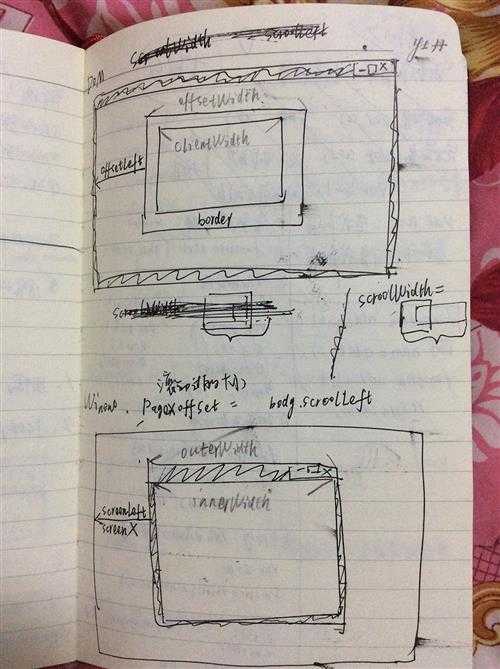 scrollWidth scrollLeft
DOM
offsetWidth
clientWidth
offsetLeft
border
scrollWidth
scrollWidth=
Window. PageXoffset = body.scrollLeft
outerWidth
innerWidth
screenLeft
screenX